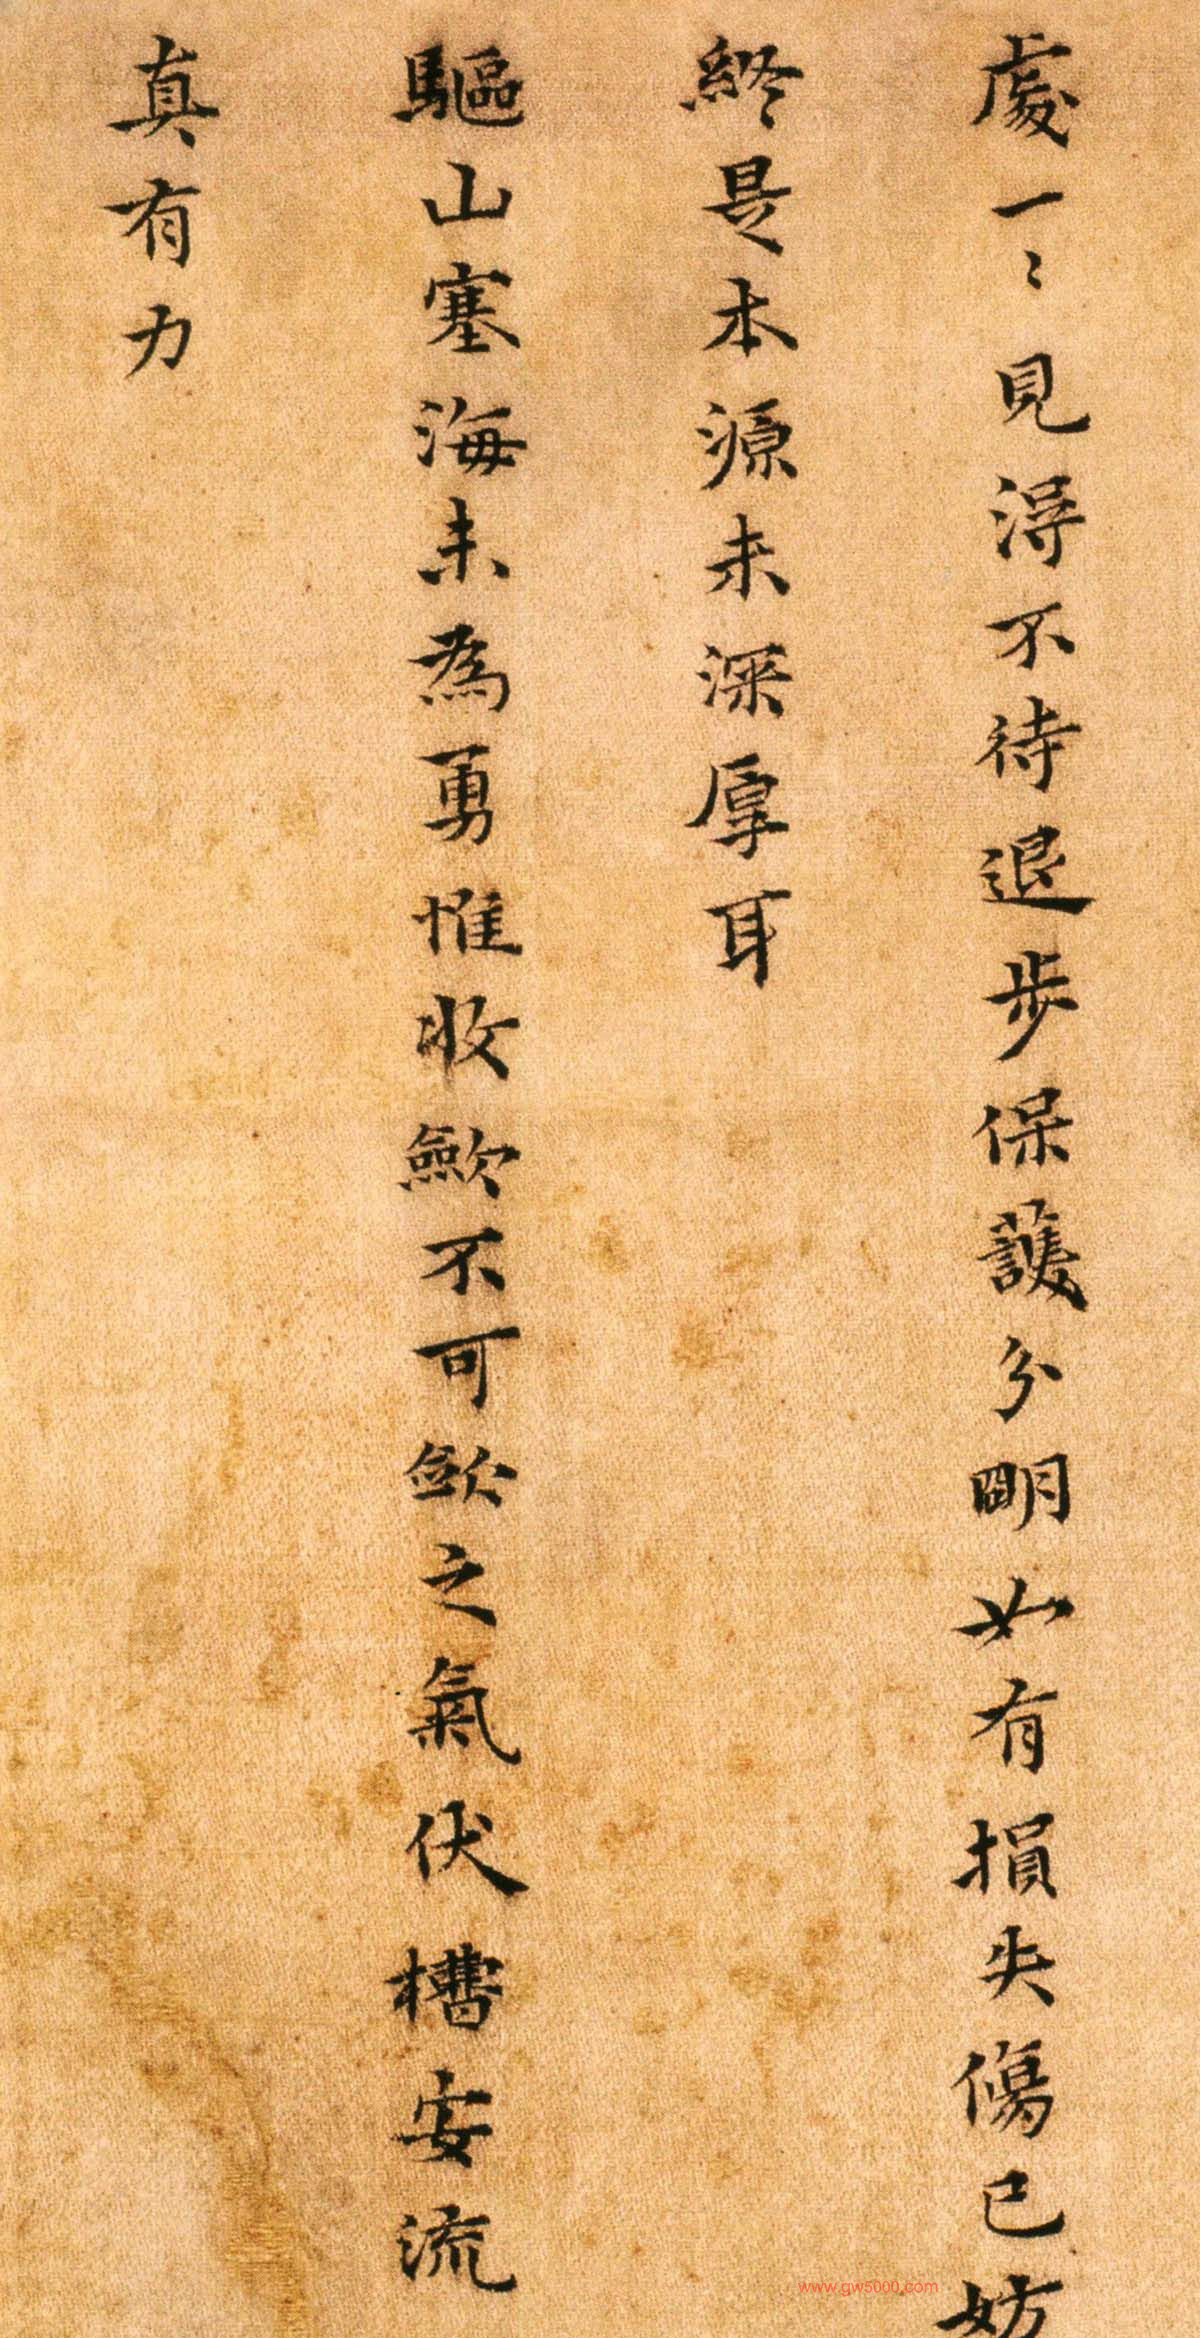 處一〻見淂不待退步保護分明如有損失傷已妨
終是本源未深厚耳
驅山塞海未為勇惟收歛不可歛之氣伏槽安流
真有力
www.gw5000.com